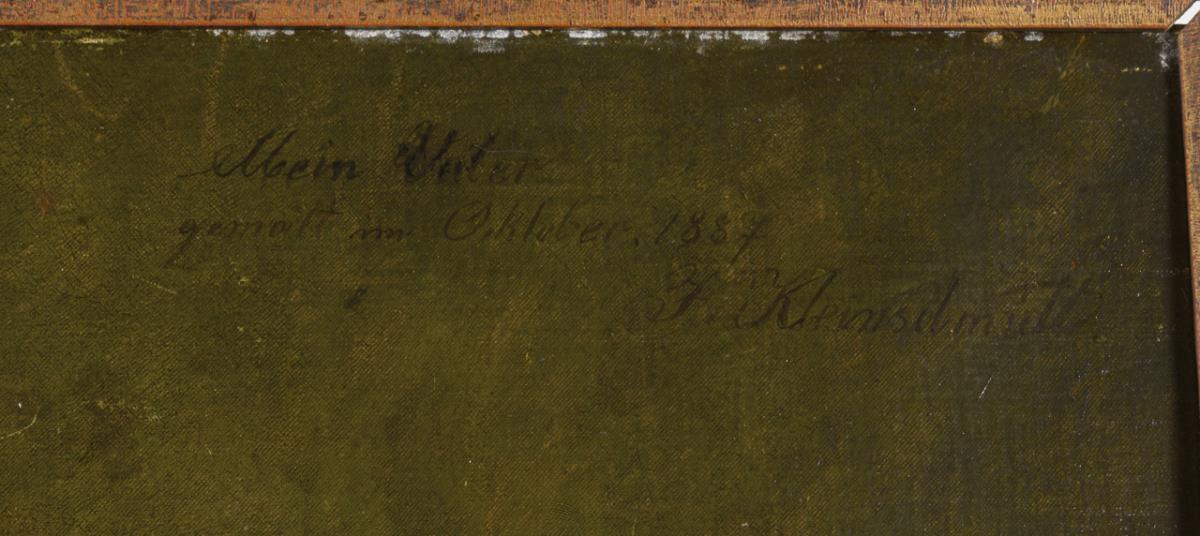 Mein Vater
gemalt im Oktober. 1887
F. Kleinschmidt